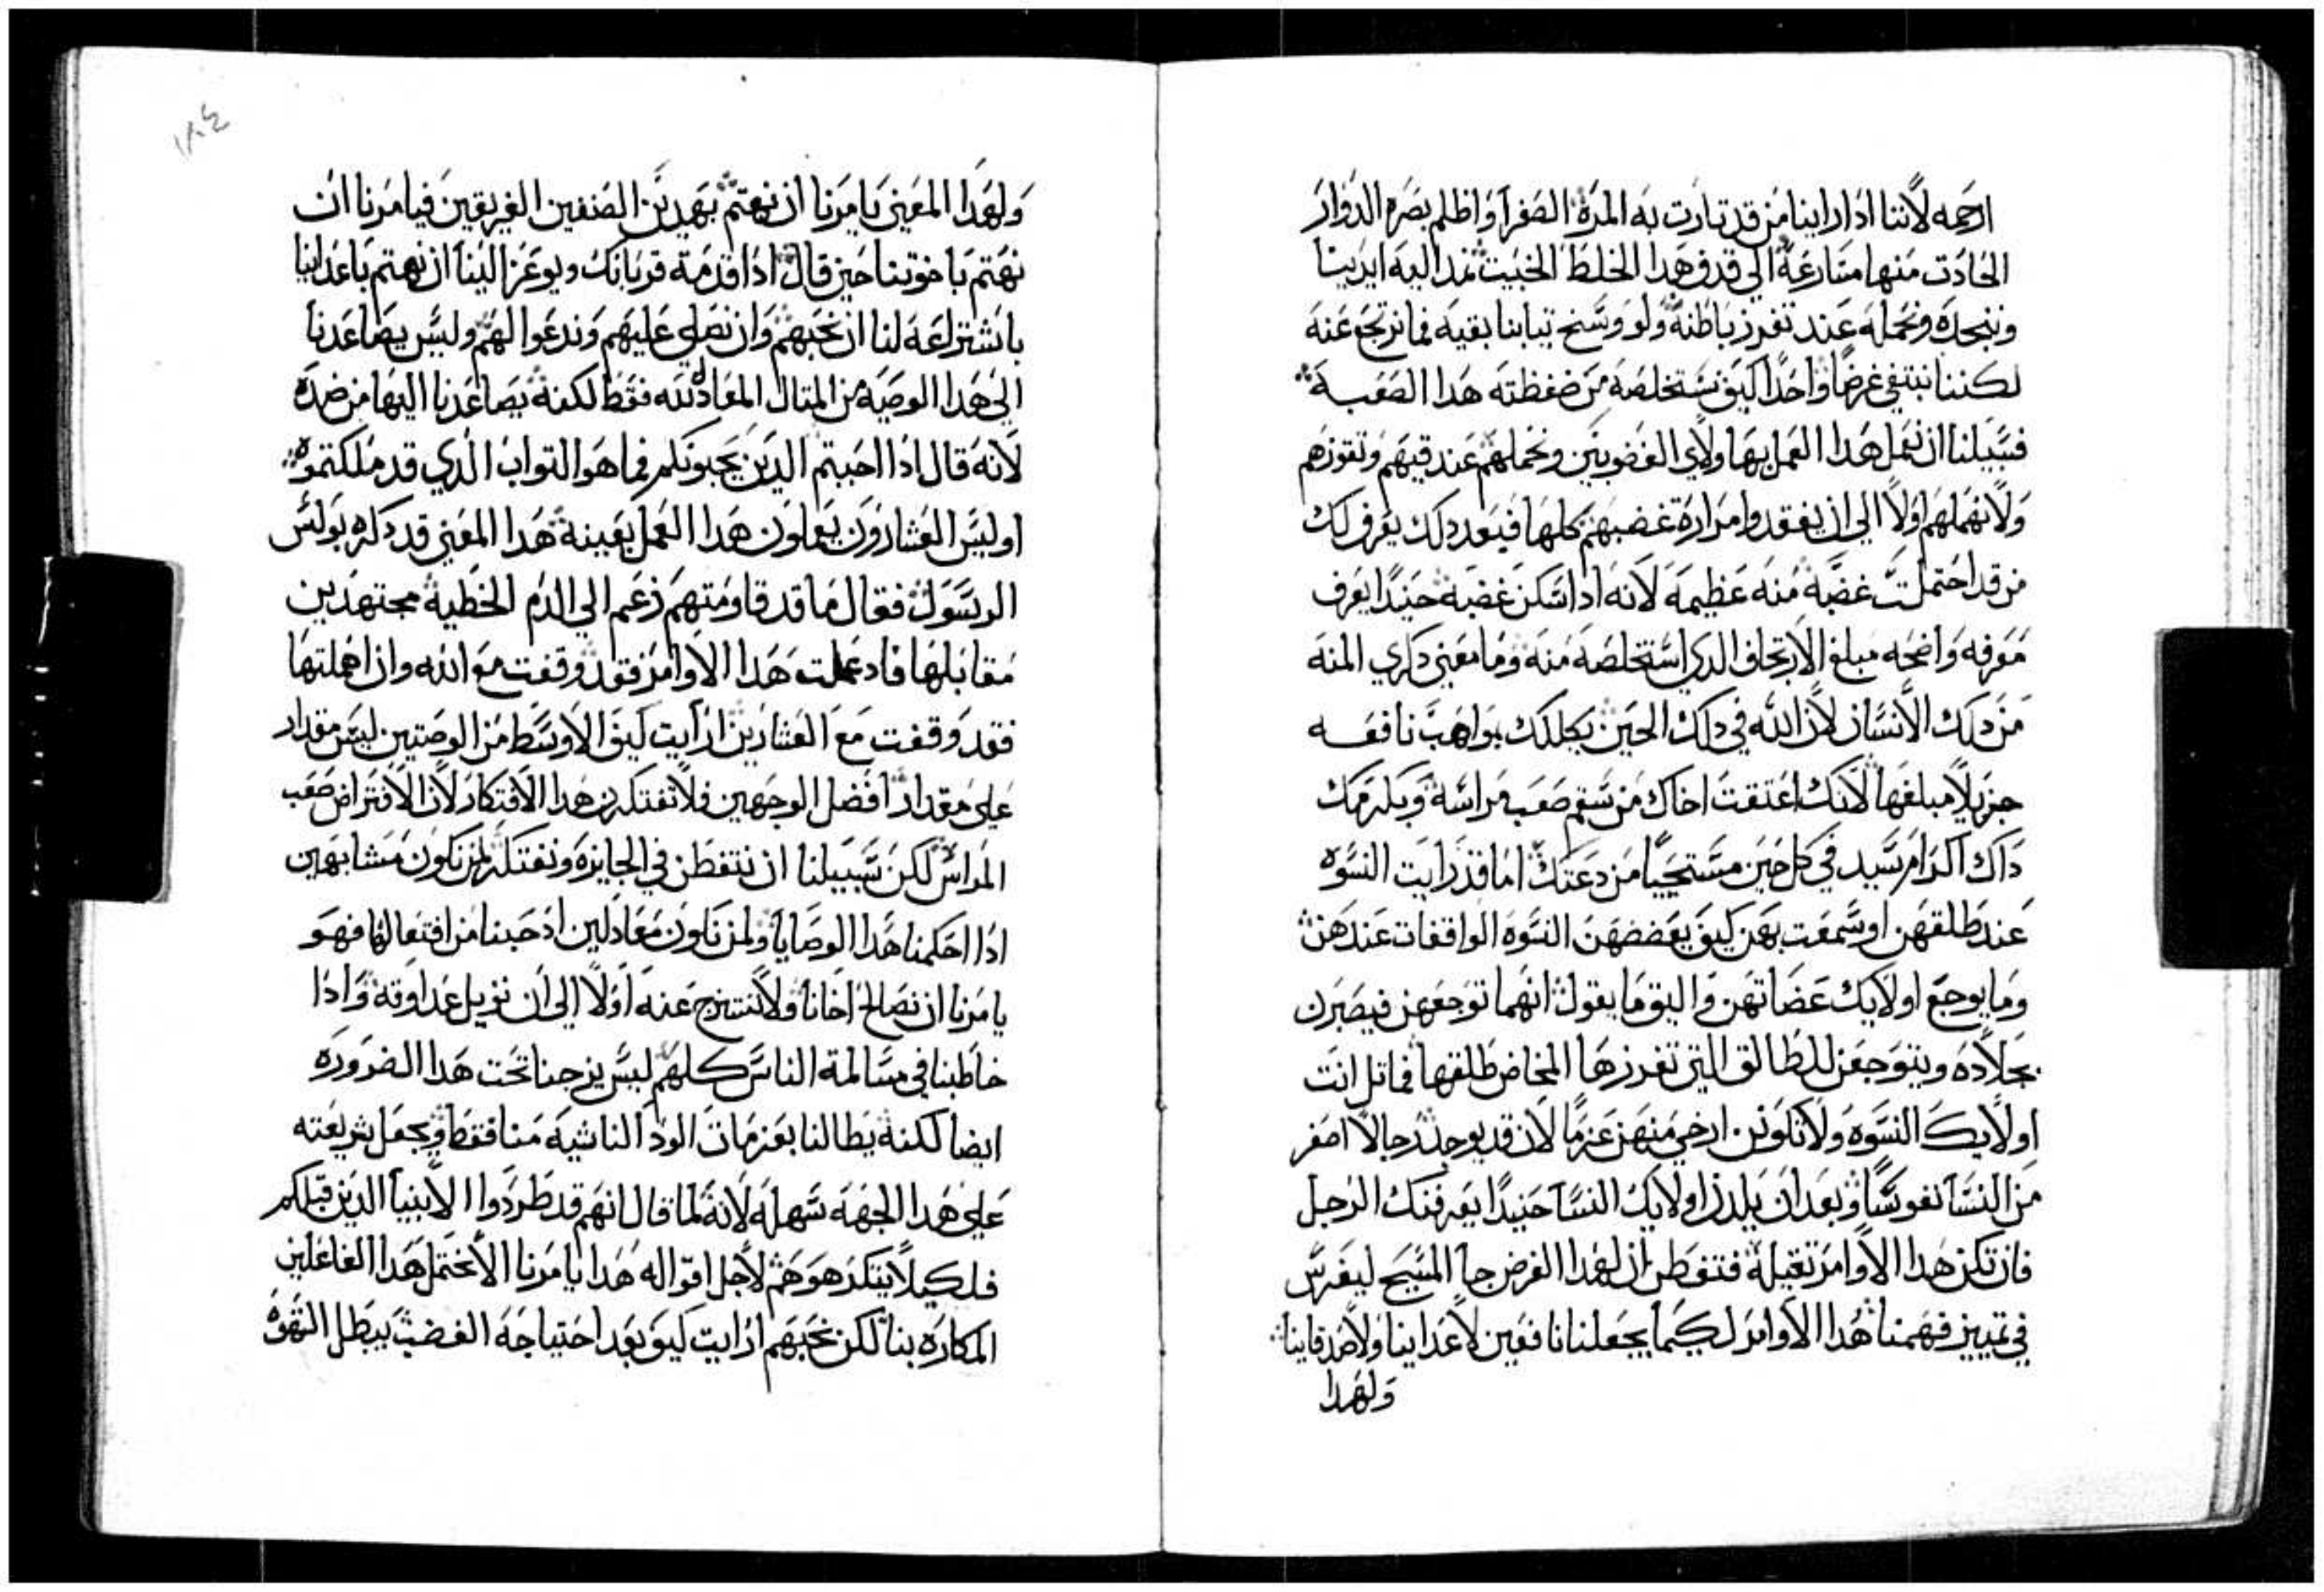 ارحمه لاننا ادا راينا من قد تارت به المرة الصفرا واظلم بصره الدوار
الحادت منها مسارعة الي قدف هدا الخلط الخبيت نمد اليه ايدينا
وننجده ونحمله عند تفرز باطنه ولو وسخ تيابنا بقيه فما نرتجع عنه
لكننا نبتغي غرضا واحدا كيف نستخلصه من ضغظته هدا الصعبة
فسبيلنا ان نعمل هدا العمل بهاولاي الغضوبين ونحملهم عند قيهم وتقوزهم
ولا نهملهم اولا الي ان يفقدوا مرارة غضبهم كلها فبعد دلك يعرف لك
من قد احتملت غضبه منه عظيمه لانه ادا سكن غضبه حنيدا يعرف
معرفه واضحه مبلغ الارتجاف الدي استخلصه منه وما معني دكري المنه
من دلك الانسان لان الله في دلك الحين يكللك بواهب نافعه
جزيلا مبلغها لانك اعتقت اخاك من سقم صعب مراسه ويكرمك
داك اكرام سيد في كل حين مستحييا من دعتك اما قد رايت النسوه
عند طلقهن او سمعت بهن كيف يعضضهن النسوه الواقفات عندهن
وما يوجع اولايك عضاتهن واليق ما يقول انهما توجعهن فيصبرن
بجلاده ويتوجعن للطالق التي تفرزها المخاض طلقها فماتل انت
اولايك النسوه ولا تكونن ارخي منهن عزما لان قد يوجد رجالا اصغر
من النسا نفوسا وبعد ان يلدن اولايك النسا حنيدا يعرفنك الرجل
فان تكن هدا الاوامر تقيله فتفطن ان لهدا الغرض جا المسيح ليغرس
في تمييز فهمنا هدا الاوامر لكيما يجعلنا نافعين لاعداينا ولاصدقاينا
ولهدا
١٨٤
ولهدا المعني يامرنا ان نهتم بهدين الصنفين الفريقين فيامرنا ان
نهتم باخوتنا حين قال ادا قدمة قربانك ويوعز الينا ان نهتم باعداينا
باشتراعه لنا ان نحبهم وان نصلي عليهم وندعوا لهم وليس يصاعدنا
الي هدا الوصيه من المتال المعادلله فقط لكنه يصاعدنا اليها من ضده
لانه قال ادا احببتم الدين يحبونكم فما هو التواب الدي قد ملكتموه
اوليس العشارون يعملون هدا العمل بعينة هدا المعني قد دكره بولس
الرسول فقال ما قد قاومتهم زعم الي الدم الخطية مجتهدين
مقابلها فاد عملت هدا الاوامر فقد وقفت مع الله وان اهملتها
فقد وقفت مع العشارين ارايت كيف الاوسط من الوصتين ليس مقدار
علي مقدار افضل الوجهين فلا تفتكرن هدا الافتكار لان الافتراض صعب
المراس لكن سبيلنا ان نتفطن في الجايزه ونفتكر لمن نكون مشابهين
ادا احكمنا هدا الوصايا ولمن نكون معادلين ادحبنا من افتعالها فهو
يامرنا ان نصالح اخانا ولا نستنزح عنه اولا الي ان نزيل عداوته وادا
خاطبنا في مسالمة الناس كلهم ليس يزجنا تحت هدا الضروره
ايضا لكنه يطالنا بعزمات الود الناشيه منا فقط ويجعل شريعته
علي هدا الجهه سهله لانه لما قال انهم قد طردوا الانبيا الدين قبلكم
فلكيلا يتكرهوهم لاجل اقواله هدا يامرنا الا نحتمل هدا الفاعلين
المكاره بنا لكن نحبهم ارايت كيف بعد احتياجه الغضب يبطل الشهوة